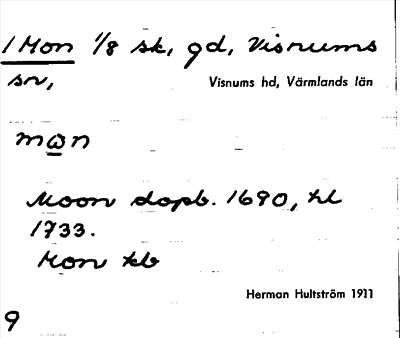 1 Mon 1/8 sk, gd, Visnums
sn,
Visnums hd, Värmlands län
mωn
Moon dopb. 1690, hl
1733.
Mon kb
Herman Hultström 1911
9